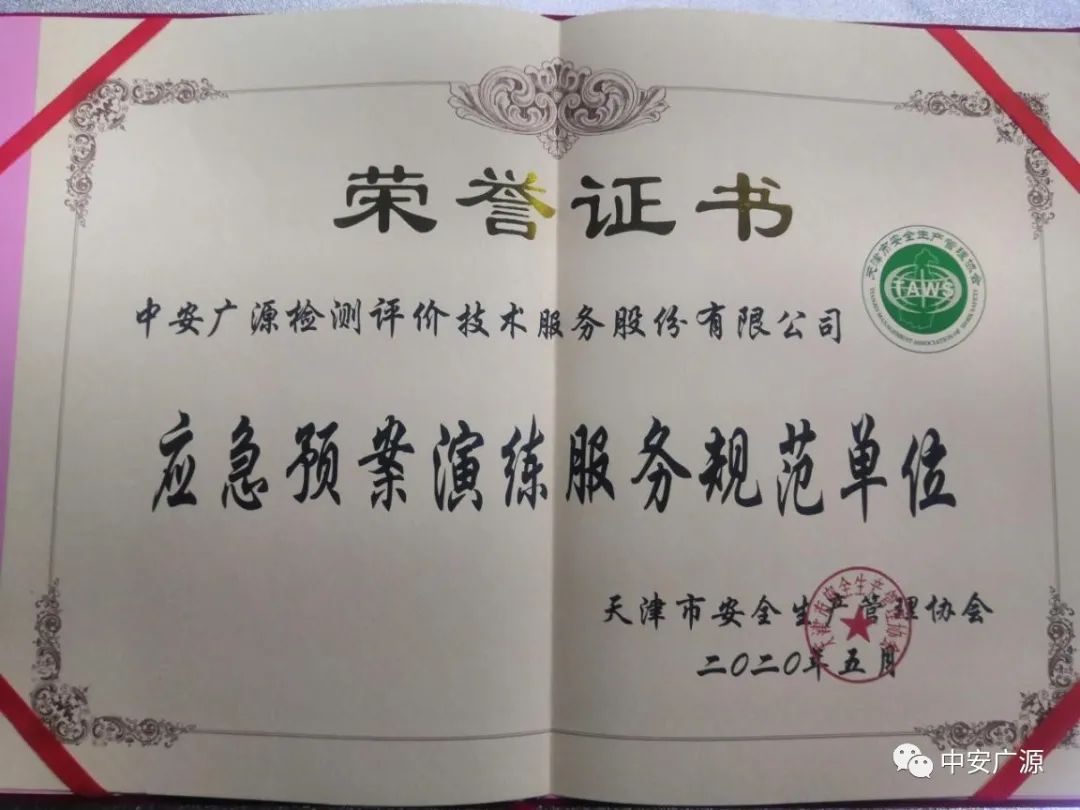 荣誉证书
天津市安全生产管理协会
TAWS
中安广源检测评价技术服务股份有限公司
应急预案演练服务规范单位
天津市安全生产管理协会
二〇二〇年五月
天津市安全生产管理协会
中安广源